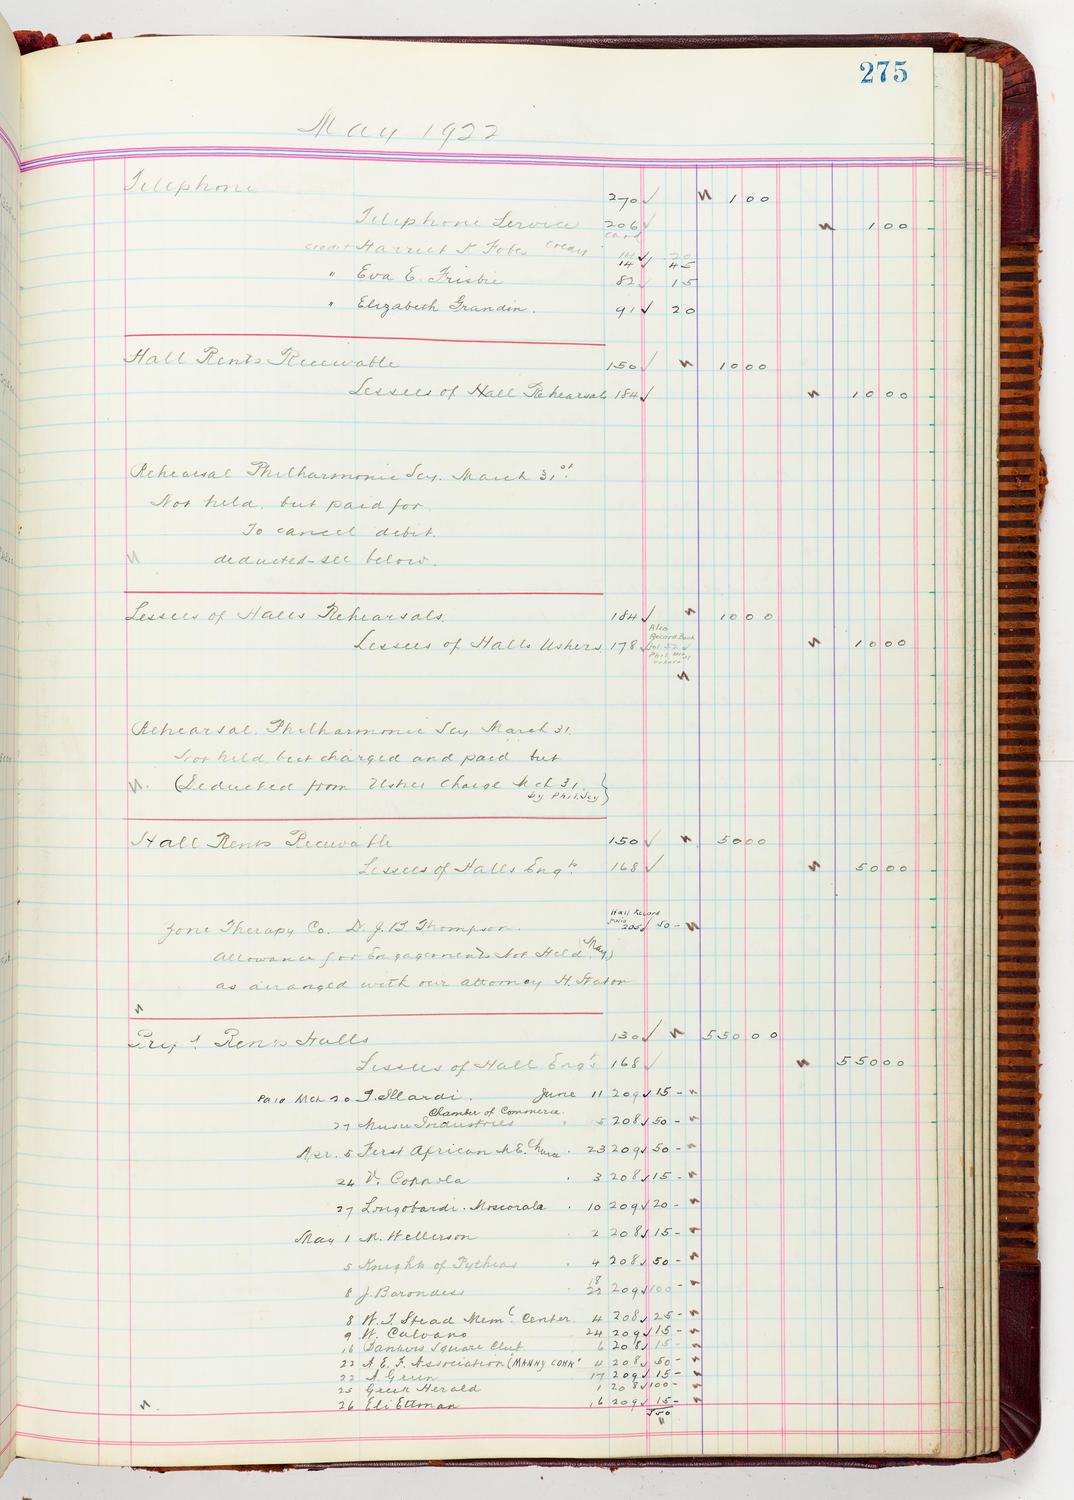 275
May 1922
Telephone 270 ✓ 1 00
Telephone Service 206 ✓ 1 00
card
credit Harriet F Fobes Credit 14 ✓ 20
14 ✓ 45
" Eva E. Frisbie 82 ✓ 15
" Elizabeth Grandin. 91 ✓ 20
Hall Rents Receivable 150 ✓ 10 00
Lessees of Hall Rehearsals 184 ✓ 10 00
Rehearsal Philharmonic Soy. March 31st.
Not held, but paid for.
To cancel debit.
deducted - see below.
Lessees of Halls Rehearsals. 184 ✓ 10 00
Also
Record Book
Lessees of Halls Ushers 178 ✓ 10 00
Rehearsal Philharmonic Soy March 31.
Not held but charged and paid but
(Deducted from Usher Charge Mch 31.
by Phil. Soy)
Hall Rents Receivable 150 ✓ 50 00
Lessees of Halls Engts. 168 ✓ 50 00
Hall Record
folio
Zone Therapy Co. Dr J. B Thompson. 205 ✓ 50 -
Allowance for Engagements Not Held (May)
as arranged with our attorney H. Staton
Prepd Rents Halls 130 ✓ 550 00
Lessees of Hall Engts 168 ✓ 550 00
Paid Mch 20 T. Ilardi. June 11 209 ✓ 15 -
Chamber of Commerce.
27 Music Industries " 5 208 ✓ 50 -
Apr. 5 First African M.E. Church . 23 209 ✓ 50 -
24 V. Coppola . 3 208 ✓ 15 -
27 Longobardi. Moscorala . 10 209 ✓ 20 -
May 1 M. Wellerson 2 208 ✓ 15 -
5 Knights of Pythias . 4 208 ✓ 50 -
18
8 J. Barondess . 22 209 ✓ 100 -
8 W. T. Stead Meml. Center 4 208 ✓ 25 -
9 W. Calvano 24 209 ✓ 15 -
16 Bankers Square Club 6 208 ✓ 15 -
22 A. E. F. Association "MANNY COHN" 4 208 ✓ 50 -
22 A Green 17 209 ✓ 15 -
25 Greek Herald 1 208 ✓ 100 -
26 Eli Ettman 16 209 ✓ 15 -
550
"